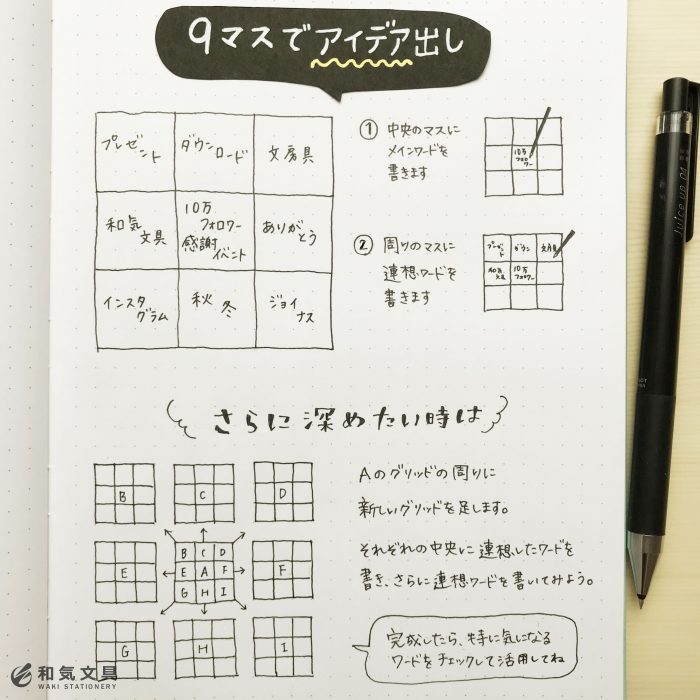 9マスでアイデア出し
プレゼント
ダウンロード
文房具
和気文具
10万
フォロワー
感謝
イベント
ありがとう
インスタグラム
秋 冬
ジョイナス
① 中央のマスに
メインワードを
書きます
10万
フォロワー
② 周りのマスに
連想ワードを
書きます
プレゼント
ダウン
文房具
和気文具
10万
フォロワー
さらに深めたい時は
B C D
B C D
E E A F F
G H I
G H I
Aのグリッドの周りに
新しいグリッドを足します。
それぞれの中央に連想したワードを
書き、さらに連想ワードを書いてみよう。
完成したら、特に気になる
ワードをチェックして活用してね
和気文具
WAKI STATIONERY
Juice up 04